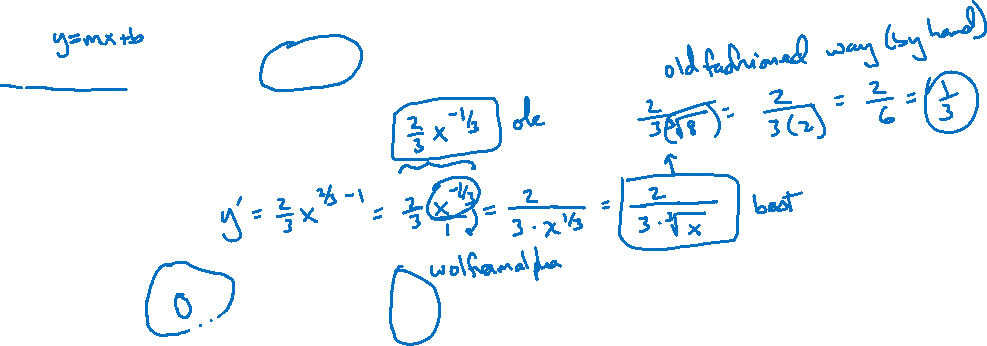 y=mx+b
old fashioned way (by hand)
2/(3(∛8)) = 2/(3(2)) = 2/6 = 1/3
2/3 x^(-1/3) ok
y' = 2/3 x^(2/3 - 1) = 2/3 x^(-1/3)/1 = 2/(3·x^(1/3)) = 2/(3·∛x) best
wolframalpha
0 ...